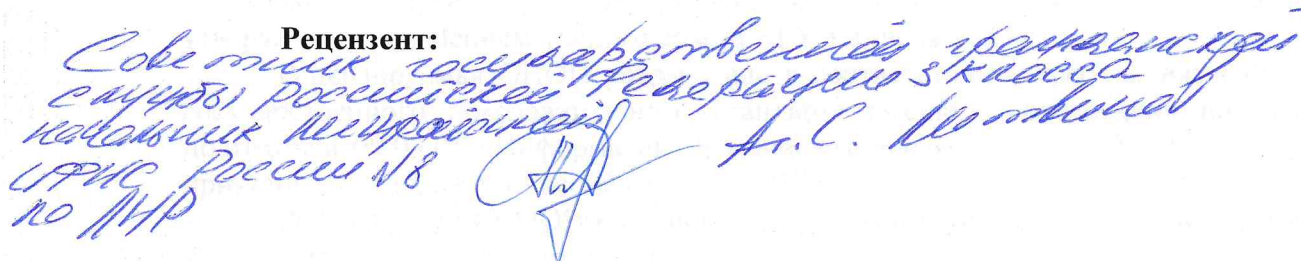 Рецензент:
Советник государственной гражданской
службы Российской Федерации 3 класса
начальник Межрайонной
ИФНС России №8 А. С. Литвинов
по ЛНР